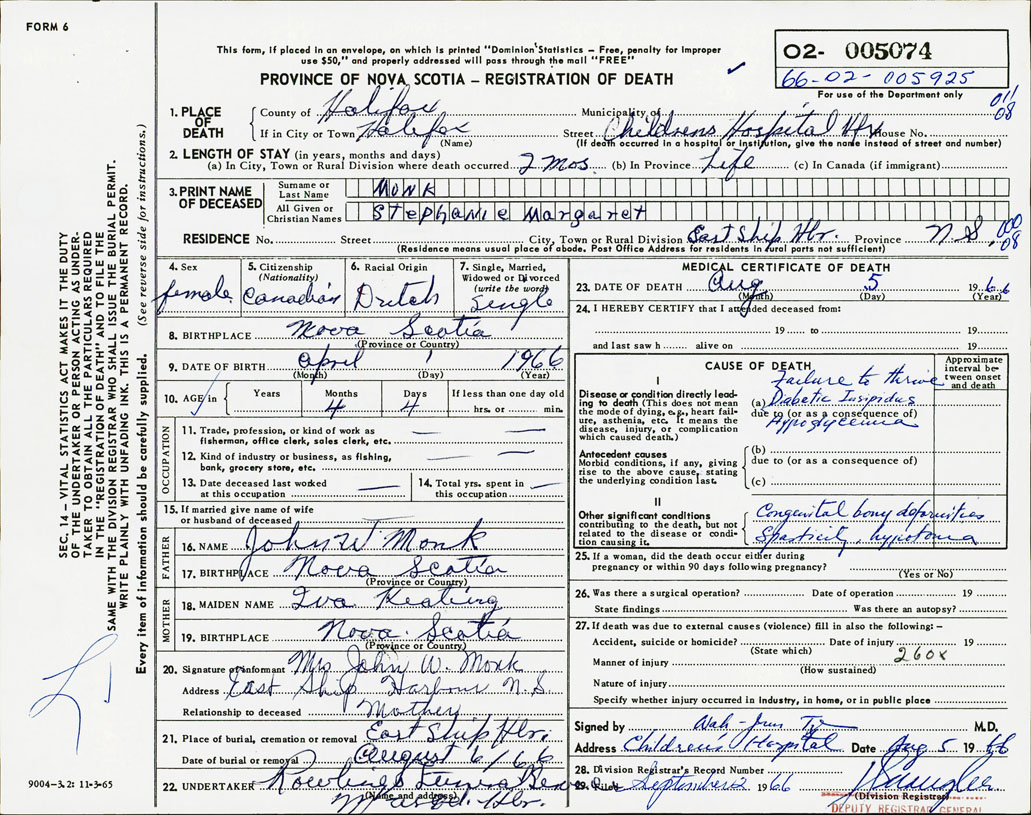 FORM 6
This form, if placed in an envelope, on which is printed "Dominion Statistics – Free, penalty for improper
use $50," and properly addressed will pass through the mail "FREE"
PROVINCE OF NOVA SCOTIA – REGISTRATION OF DEATH
02- 005074
66-02-005925
For use of the Department only
011
08
1. PLACE OF DEATH
County of Halifax Municipality of
If in City or Town Halifax Street Childrens Hospital Hfx House No.
(Name) (If death occurred in a hospital or institution, give the name instead of street and number)
2. LENGTH OF STAY (in years, months and days)
(a) In City, Town or Rural Division where death occurred 2 Mos. (b) In Province Life (c) In Canada (if immigrant)
3. PRINT NAME OF DECEASED
Surname or Last Name MONK
All Given or Christian Names Stephanie Margaret
RESIDENCE No. Street City, Town or Rural Division East Ship Hbr. Province N.S.
000
08
(Residence means usual place of abode. Post Office Address for residents in rural parts not sufficient)
4. Sex
female
5. Citizenship
(Nationality)
Canadian
6. Racial Origin
Dutch
7. Single, Married,
Widowed or Divorced
(write the word)
Single
8. BIRTHPLACE Nova Scotia
(Province or Country)
9. DATE OF BIRTH April 1 1966
(Month) (Day) (Year)
10. AGE in
Years Months Days If less than one day old
4 4 hrs. or min.
OCCUPATION
11. Trade, profession, or kind of work as
fisherman, office clerk, sales clerk, etc.
12. Kind of industry or business, as fishing,
bank, grocery store, etc.
13. Date deceased last worked
at this occupation
14. Total yrs. spent in
this occupation
15. If married give name of wife
or husband of deceased
FATHER
16. NAME John W. Monk
17. BIRTHPLACE Nova Scotia
(Province or Country)
MOTHER
18. MAIDEN NAME Iva Keating
19. BIRTHPLACE Nova Scotia
(Province or Country)
20. Signature of informant Mrs John W. Monk
Address East Ship Harbour N.S
Relationship to deceased Mother
21. Place of burial, cremation or removal East Ship Hbr.
Date of burial or removal August 6/66
22. UNDERTAKER
(Name and address)
Hbr.
MEDICAL CERTIFICATE OF DEATH
23. DATE OF DEATH Aug 5 1966
(Month) (Day) (Year)
24. I HEREBY CERTIFY that I attended deceased from:
19 to 19
and last saw h alive on 19
CAUSE OF DEATH
Approximate
interval be-
tween onset
and death
I
Disease or condition directly lead-
ing to death (This does not mean
the mode of dying, e.g., heart fail-
ure, asthenia, etc. It means the
disease, injury, or complication
which caused death.)
Failure to thrive
(a) Diabetic Insipidus
due to (or as a consequence of)
Hypoglycemia
Antecedent causes
Morbid conditions, if any, giving
rise to the above cause, stating
the underlying condition last.
(b)
due to (or as a consequence of)
(c)
II
Other significant conditions
contributing to the death, but not
related to the disease or condi-
tion causing it.
Congenital bony deformities
Spasticity, hypotonia
25. If a woman, did the death occur either during
pregnancy or within 90 days following pregnancy?
(Yes or No)
26. Was there a surgical operation? Date of operation 19
State findings Was there an autopsy?
27. If death was due to external causes (violence) fill in also the following:–
Accident, suicide or homicide? Date of injury 19
(State which)
260x
Manner of injury
(How sustained)
Nature of injury
Specify whether injury occurred in industry, in home, or in public place
Signed by M.D.
Address Children's Hospital Date Aug 5 1966
28. Division Registrar's Record Number
29. Filed September 2 1966
(Division Registrar)
DEPUTY REGISTRAR GENERAL
SEC. 14 – VITAL STATISTICS ACT MAKES IT THE DUTY
OF THE UNDERTAKER OR PERSON ACTING AS UNDER-
TAKER TO OBTAIN ALL THE PARTICULARS REQUIRED
IN THE "REGISTRATION OF DEATH" AND TO FILE THE
SAME WITH THE DIVISION REGISTRAR WHO SHALL ISSUE THE BURIAL PERMIT.
WRITE PLAINLY WITH UNFADING INK. THIS IS A PERMANENT RECORD.
Every item of information should be carefully supplied. (See reverse side for instructions.)
9004-3.2: 11-3-65